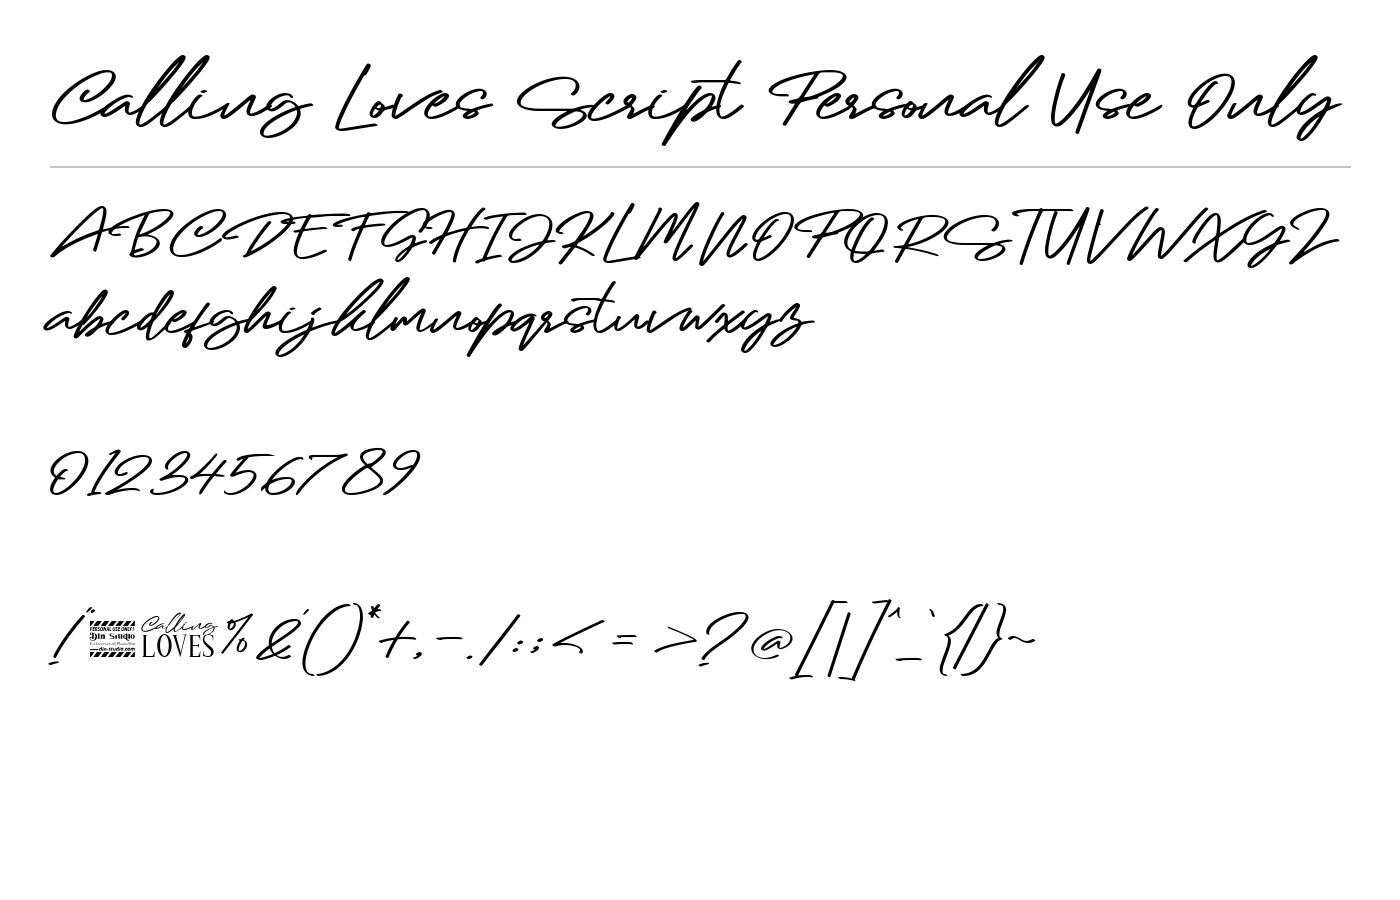 Calling Loves Script Personal Use Only
ABCDEFGHIJKLMNOPQRSTUVWXYZ
abcdefghijklmnopqrstuvwxyz
0123456789
!"
PERSONAL USE ONLY!
Din Studio
din-studio.com
Calling
LOVES
%&'()*+,-./:;<=>?@[\]^_`{|}~